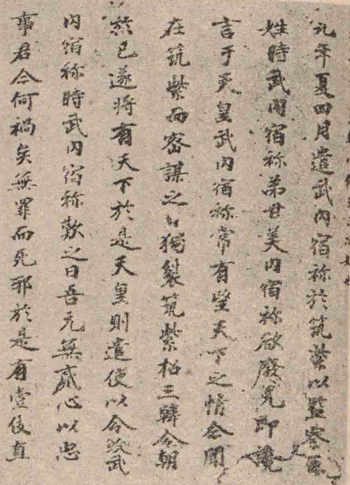 九年夏四月遣武内宿祢於筑紫以監察百
姓時武内宿祢弟甘美内宿祢欲廢兄即讒
言于天皇武内宿祢常有望天下之情今聞
在筑紫而密謀之曰獨裂筑紫招三韓令朝
於己遂將有天下於是天皇則遣使以令殺武
内宿祢時武内宿祢歎之曰吾元無貳心以忠
事君今何禍矣無罪而死邪於是有壹伎直